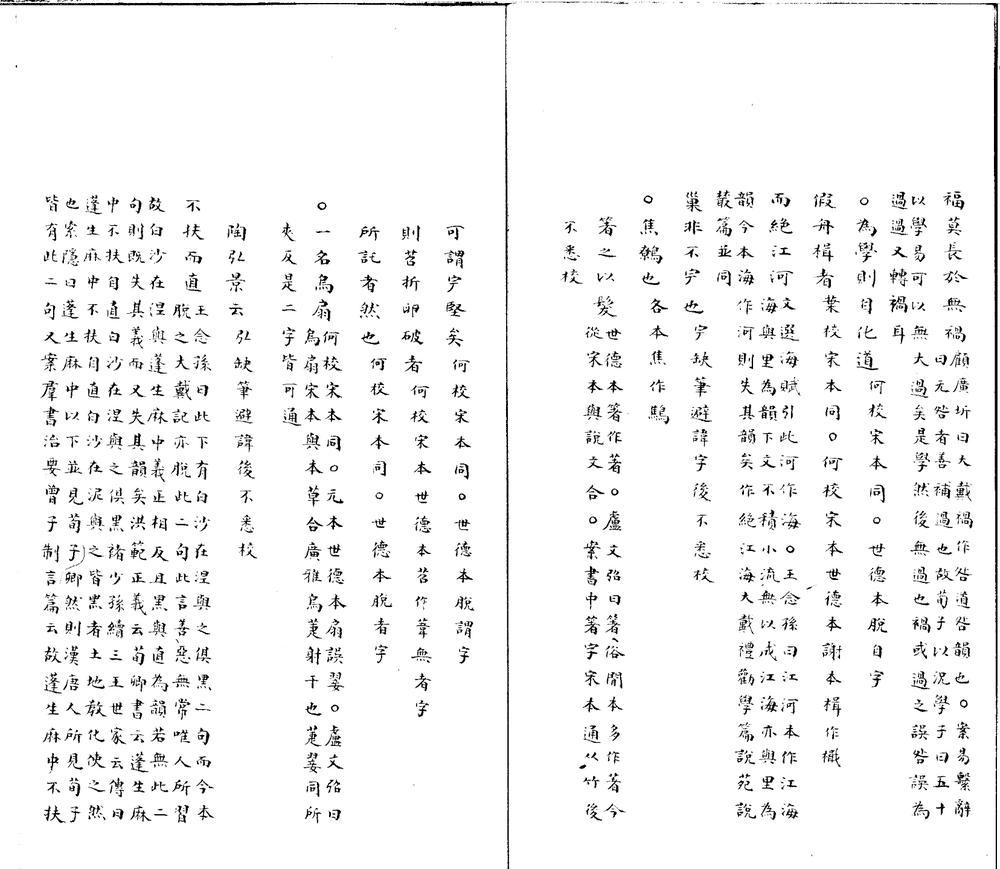 福莫長於無禍顧廣圻曰大戴禍作咎道咎韻也○案易繫辭
曰元咎者善補過也故荀子以況學子曰五十
以學易可以無大過矣是學然後無過也禍或過之誤咎誤為
過過又轉禍耳
○為學則自化道何校宋本同○世德本脫自字
假舟楫者葉校宋本同○何校宋本世德本謝本楫作檝
而絕江河文選海賦引此河作海○王念孫曰江河本作江海
海與里為韻下文不積小流無以成江海亦與里為
韻今本海作河則失其韻矣作絕江海大戴禮勸學篇說苑說
叢篇並同
巢非不完也完缺筆避諱字後不悉校
○焦鷯也各本焦作鷦
箸之以髮世德本箸作著○盧文弨曰箸俗閒本多作著今
從宋本與說文合○案書中箸字宋本通从竹後
不悉校
可謂完堅矣何校宋本同○世德本脫謂字
則苕折卵破者何校宋本世德本苕作葦無者字
所託者然也何校宋本同○世德本脫者字
○一名烏扇何校宋本同○元本世德本扇誤翣○盧文弨曰
烏扇宋本與本草合廣雅烏萐射干也萐翣同所
夾反是二字皆可通
陶弘景云弘缺筆避諱後不悉校
不扶而直王念孫曰此下有白沙在涅與之俱黑二句而今本
脫之大戴記亦脫此二句此言善惡無常唯人所習
故白沙在涅與蓬生麻中義正相反且黑與直為韻若無此二
句則既失其義而又失其韻矣洪範正義云荀卿書云蓬生麻
中不扶自直白沙在涅與之俱黑褚少孫續三王世家云傳曰
蓬生麻中不扶自直白沙在泥與之皆黑者土地教化使之然
也索隱曰蓬生麻中以下並見荀子卿然則漢唐人所見荀子
皆有此二句又案羣書治要曾子制言篇云故蓬生麻中不扶